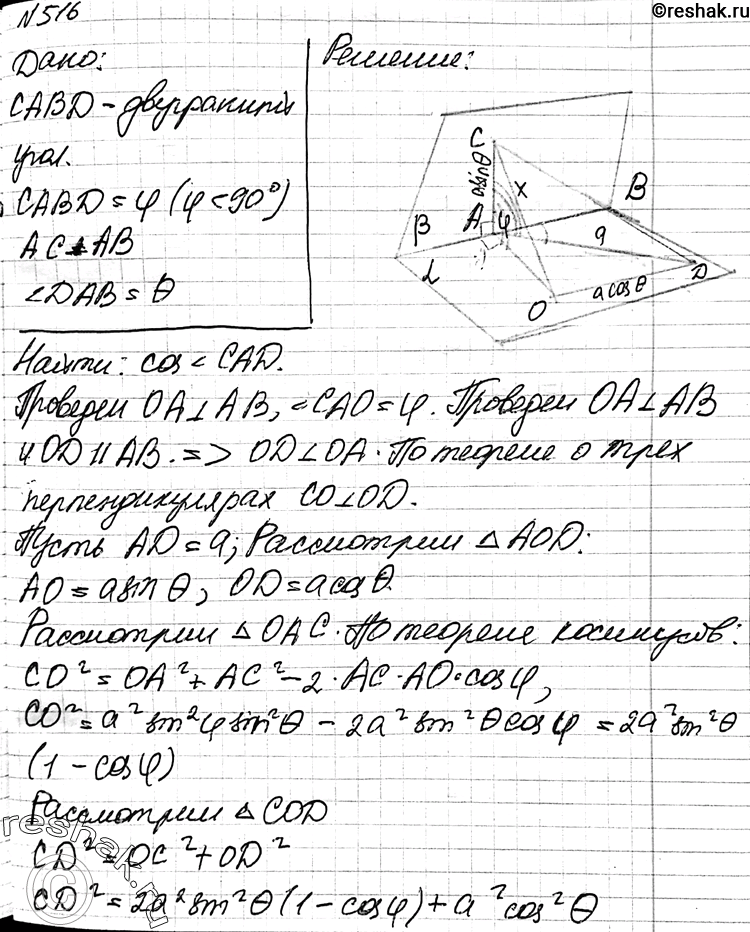 ©reshak.ru
N516
Дано:
CABD - двугранный
угол.
CABD = φ (φ < 90°)
AC ⊥ AB
∠DAB = θ
Решение:
C
asinθ
x
B
A
φ
β
a
L
D
O
a cosθ
Найти: cos ∠ CAD.
Проведем OA ⊥ AB, ∠CAO = φ. Проведем OA ⊥ AB
и OD || AB. => OD ⊥ OA. По теореме о трех
перпендикулярах CO ⊥ OD.
Пусть AD = a; Рассмотрим △ AOD:
AO = a sin θ, OD = a cos θ.
Рассмотрим △ OAC. По теореме косинусов:
CO² = OA² + AC² - 2 · AC · AO · cos φ,
CO² = a² sin² φ sin² θ - 2a² sin² θ cos φ = 2a² sin² θ
(1 - cos φ)
Рассмотрим △ COD
CD² = OC² + OD²
CD² = 2a² sin² θ (1 - cos φ) + a² cos² θ
reshak.ru